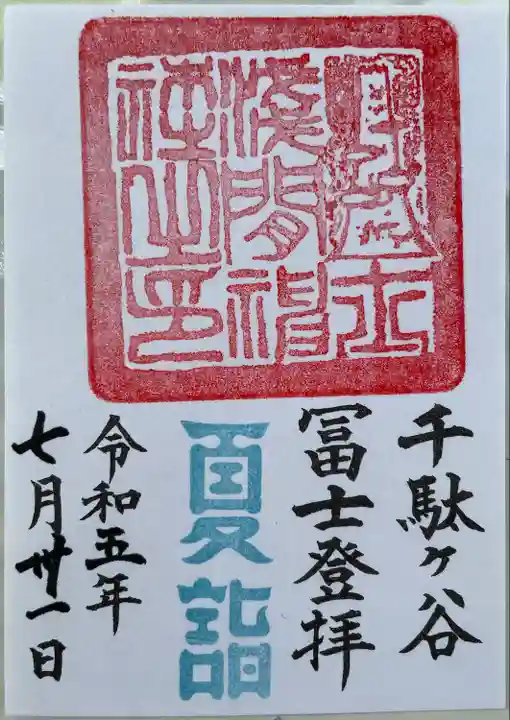 冨士
浅間神
社之印
千駄ヶ谷
冨士登拝
夏詣
令和五年
七月卅一日